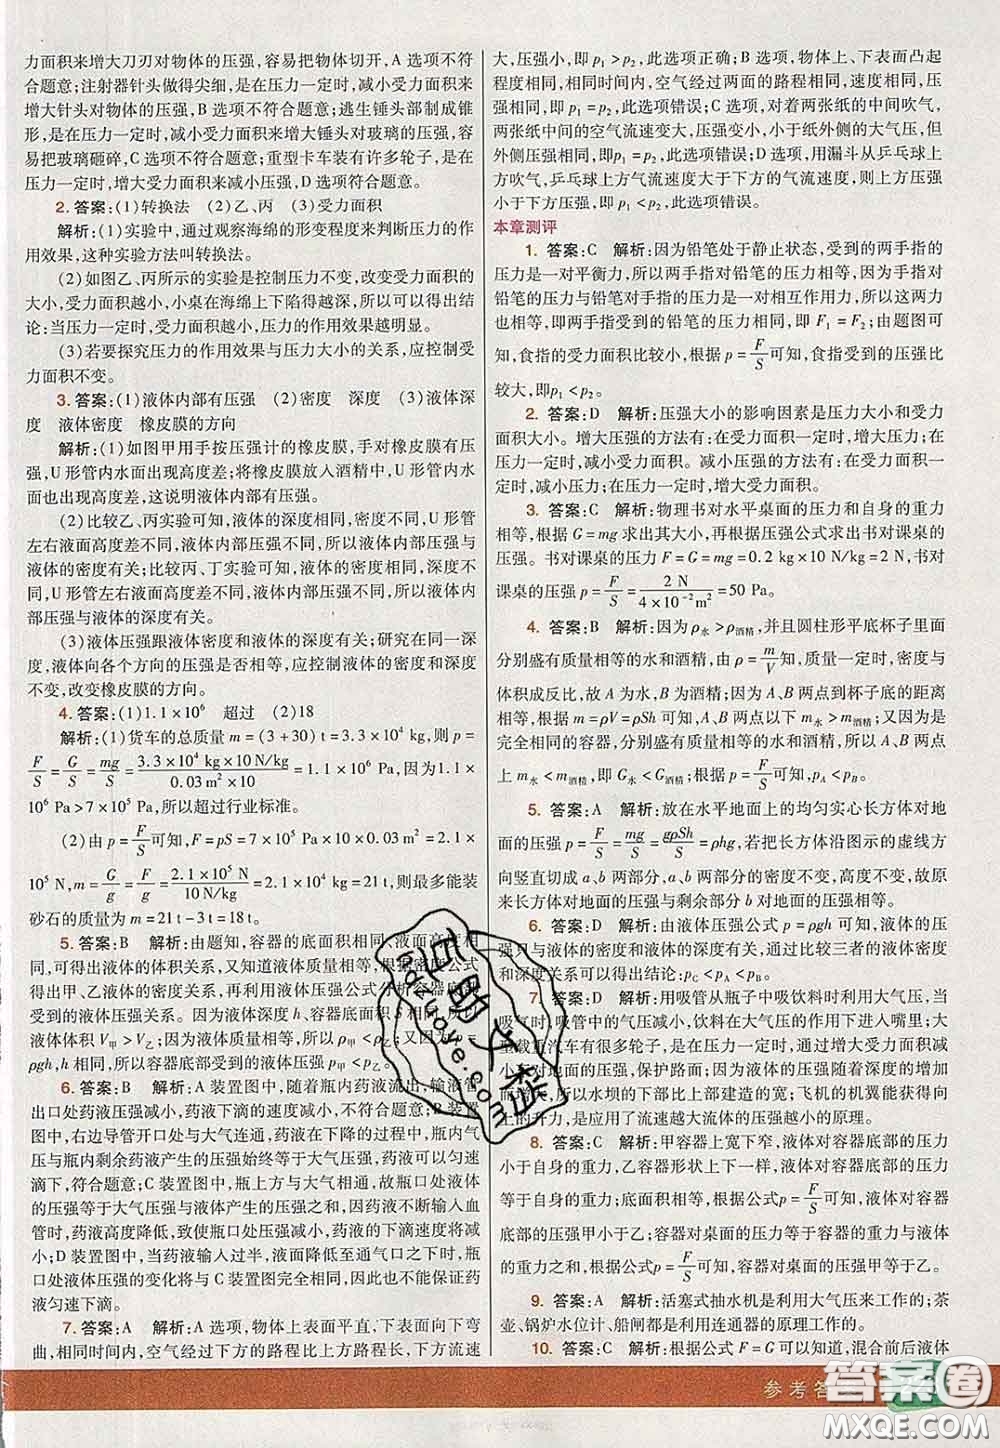 力面积来增大刀刃对物体的压强,容易把物体切开,A选项不符
合题意;注射器针头做得尖细,是在压力一定时,减小受力面积来
增大针头对物体的压强,B选项不符合题意;逃生锤头部制成锥
形,是在压力一定时,减小受力面积来增大锤头对玻璃的压强,容
易把玻璃砸碎,C选项不符合题意;重型卡车装有许多轮子,是在
压力一定时,增大受力面积来减小压强,D选项符合题意。
2. 答案:(1)转换法 (2)乙、丙 (3)受力面积
解析:(1)实验中,通过观察海绵的形变程度来判断压力的作
用效果,这种实验方法叫转换法。
(2)如图乙、丙所示的实验是控制压力不变,改变受力面积的
大小,受力面积越小,小桌在海绵上下陷得越深,所以可以得出结
论:当压力一定时,受力面积越小,压力的作用效果越明显。
(3)若要探究压力的作用效果与压力大小的关系,应控制受
力面积不变。
3. 答案:(1)液体内部有压强 (2)密度 深度 (3)液体深
度 液体密度 橡皮膜的方向
解析:(1)如图甲用手按压强计的橡皮膜,手对橡皮膜有压
强,U形管内水面出现高度差;将橡皮膜放入酒精中,U形管内水
面也出现高度差,这说明液体内部有压强。
(2)比较乙、丙实验可知,液体的深度相同,密度不同,U形管
左右液面高度差不同,液体内部压强不同,所以液体内部压强与
液体的密度有关;比较丙、丁实验可知,液体的密度相同,深度不
同,U形管左右液面高度差不同,液体内部压强不同,所以液体内
部压强与液体的深度有关。
(3)液体压强跟液体密度和液体的深度有关;研究在同一深
度,液体向各个方向的压强是否相等,应控制液体的密度和深度
不变,改变橡皮膜的方向。
4. 答案:(1)1.1×10⁶ 超过 (2)18
解析:(1)货车的总质量 m=(3+30) t=3.3×10⁴ kg,则 p=
F/S=G/S=mg/S=3.3×10⁴ kg×10 N/kg/0.03 m²×10=1.1×10⁶ Pa,因为1.1×
10⁶ Pa>7×10⁵ Pa,所以超过行业标准。
(2)由p=F/S可知,F=pS=7×10⁵ Pa×10×0.03 m²=2.1×
10⁵ N,m=G/g=F/g=2.1×10⁵ N/10 N/kg=2.1×10⁴ kg=21 t,则最多能装
砂石的质量为 m=21 t-3 t=18 t。
5. 答案:B 解析:由题知,容器的底面积相同,液面高度相
同,可得出液体的体积关系,又知道液体质量相等,根据密度公式
得出甲、乙液体的密度关系,再利用液体压强公式分析容器底部
受到的液体压强大小。因为液体深度h、容器底面积S相同,所以
液体体积V甲>V乙;因为液体质量相等,所以ρ甲<ρ乙;因为 p=
ρgh,h相同,所以容器底部受到的液体压强 p甲<p乙。
6. 答案:B 解析:A装置图中,随着瓶内药液流出,输液管
出口处药液压强减小,药液下滴的速度减小,不符合题意;B装置
图中,右边导管开口处与大气连通,药液在下降的过程中,瓶内气
压与瓶内剩余药液产生的压强始终等于大气压强,药液可以匀速
滴下,符合题意;C装置图中,瓶上方与大气相通,故瓶口处药液
的压强等于大气压强与液体产生的压强和。因药液不断输入血
管时,药液高度降低,致使瓶口处压强减小,药液的下滴速度将减
小;D装置图中,当药液输入过半,液面降低至通气口之下时,瓶
口处液体压强的变化将与C装置图完全相同,因此也不能保证药
液匀速下滴。
7. 答案:A 解析:A选项,物体上表面平直,下表面向下弯
曲,相同时间内,空气经过下方的路程比上方路程长,下方流速
大,压强小,即p₁>p₂,此选项正确;B选项,物体上、下表面凸起
程度相同,相同时间内,空气经过两面的路程相同,速度相同,压
强相同,即p₁=p₂,此选项错误;C选项,对着两张纸的中间吹气,
两张纸中间的空气流速变大、压强变小,小于纸外侧的大气压,但
外侧压强相同,即p₁=p₂,此选项错误;D选项,用漏斗从乒乓球上
方吹气,乒乓球上方气流速度大于下方的气流速度,则上方压强
小于下方的压强,即p₁<p₂,此选项错误。
本章测评
1. 答案:C 解析:因为铅笔处于静止状态,受到的两手指的
压力是一对平衡力,所以两手指对铅笔的压力相同,因为手指对
铅笔的压力与铅笔对手指的压力是一对相互作用力,所以这两力
也相同,即两手指受到的铅笔的压力相同,即F₁=F₂;由题图可
知,食指的受力面积比较小,根据p=F/S可知,食指受到的压强比
较大,即p₁<p₂。
2. 答案:D 解析:压强大小的影响因素是压力大小和受力
面积大小。增大压强的方法有:在受力面积一定时,增大压力;在
压力一定时,减小受力面积。减小压强的方法有:在受力面积一
定时,减小压力;在压力一定时,增大受力面积。
3. 答案:C 解析:物理书对水平桌面的压力和自身的重力
相等,根据G=mg求出其大小,再根据压强公式求出书对课桌的
压强。书对课桌的压力F=G=mg=0.2 kg×10 N/kg=2 N,书对
课桌的压强p=F/S=2 N/4×10⁻² m²=50 Pa。
4. 答案:B 解析:因为ρ水>ρ酒精,并且圆柱形平底杯子里面
分别盛有质量相等的水和酒精,由ρ=m/V知,质量一定时,密度与
体积成反比,故A为水,B为酒精;又因为A、B两点到杯子底的距离
相等,根据m=ρV=ρSh可知,A、B两点以下m水>m酒精;又因为是
完全相同的容器,分别盛有质量相等的水和酒精,所以A、B两点
上m水<m酒精,即G水<G酒精;根据p=F/S可知,pA<pB。
5. 答案:A 解析:放在水平地面上的均匀实心长方体对地
面的压强p=F/S=mg/S=gρSh/S=ρhg,若把长方体沿图示的虚线方
向竖直切成a、b两部分,a、b两部分的密度不变,高度不变,故原
来长方体对地面的压强与剩余部分b对地面的压强相等。
6. 答案:D 解析:由液体压强公式p=ρgh可知,液体的压
强只与液体的密度和液体的深度有关,通过比较三者的液体密度
和深度关系可以得出结论:pC<pA<pB。
7. 答案:D 解析:用吸管从瓶子中吸饮料时利用大气压,当
吸气时,吸管中的气压减小,饮料在大气压的作用下进入嘴里;大
型载重汽车有很多轮子,是在压力一定时,通过增大受力面积来
减小压强,保护路面;因为液体内部压强随深度的增加
而增大,所以水坝的下部比上部建造的宽;飞机的机翼能获得向
上的升力,是应用了流速越大流体的压强越小的原理。
8. 答案:C 解析:甲容器上宽下窄,液体对容器底部的压力
小于自身的重力,乙容器形状上下一样,液体对容器底部的压力
等于自身的重力,底面积相等,根据公式p=F/S可知,液体对容器
底部的压强甲小于乙;容器对桌面的压力等于容器的重力与液体
的重力之和,根据公式p=F/S可知,容器对桌面的压强甲等于乙。
9. 答案:A 解析:活塞式抽水机是利用大气压来工作的;茶
壶、锅炉水位计、船闸都是利用连通器的原理工作的。
10. 答案:C 解析:根据公式F=G可以知道,混合前后液体
参考答
答案圈
MXQE.COM
正助文档